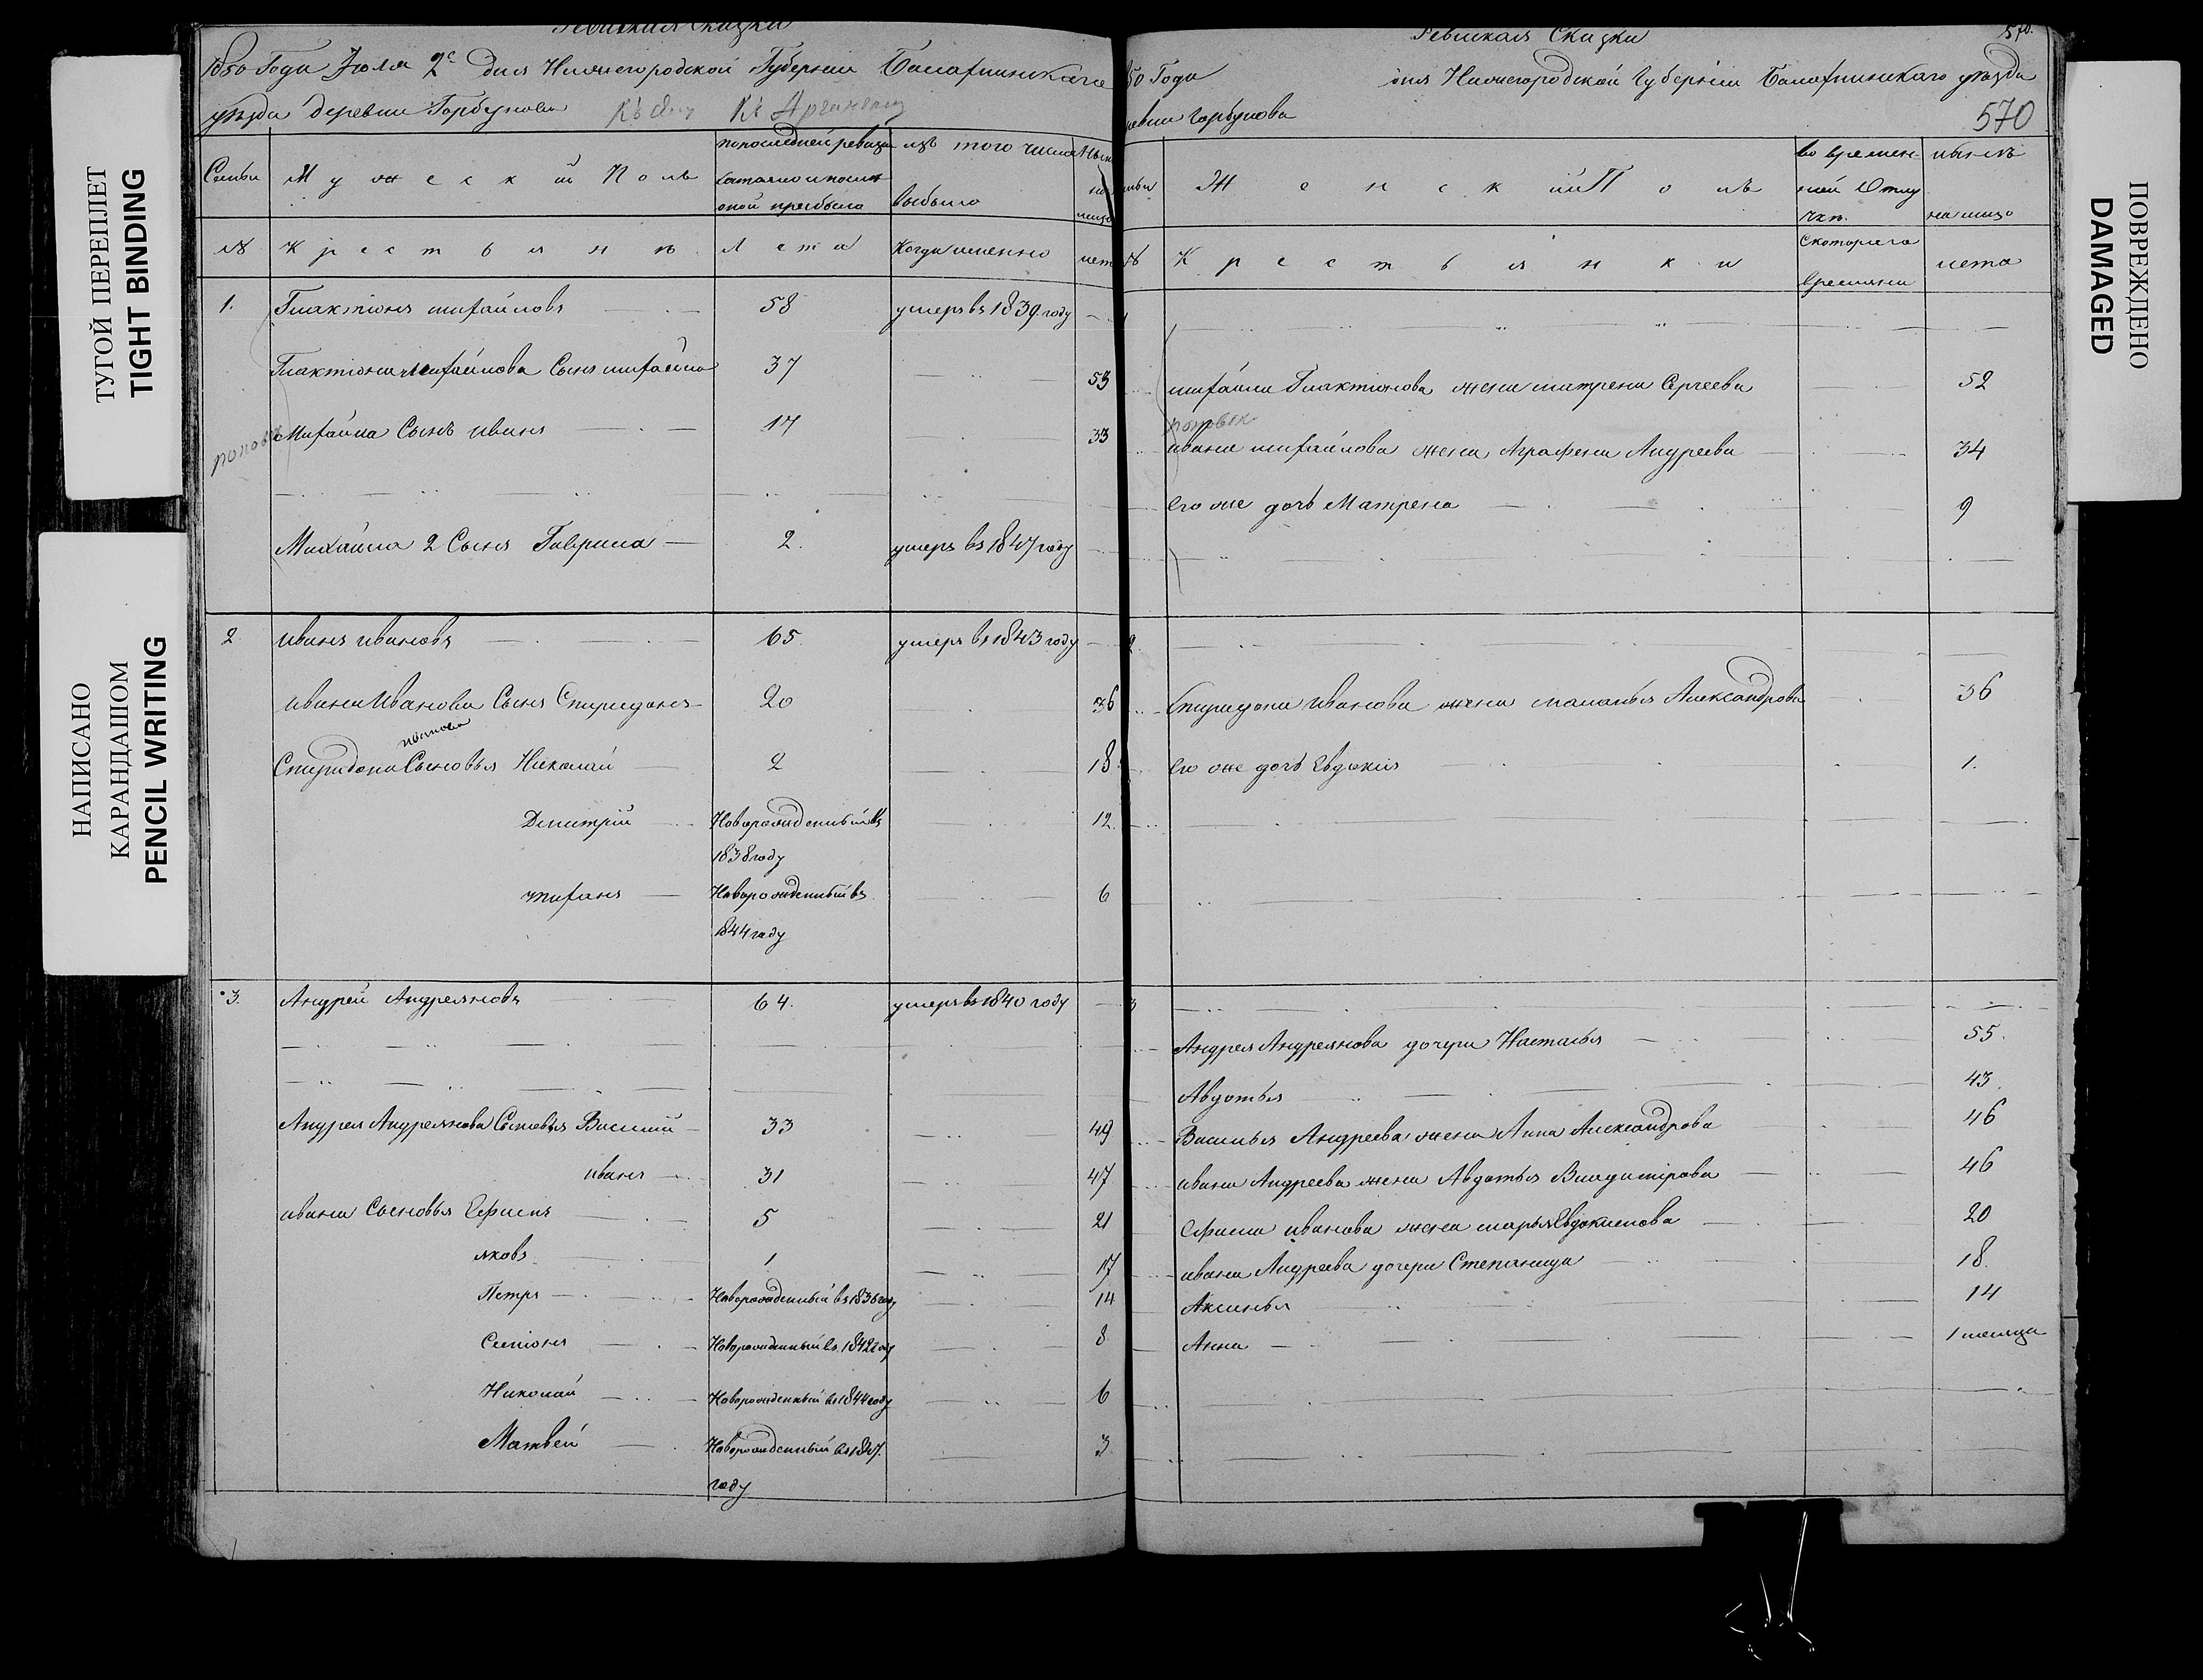 ТУГОЙ ПЕРЕПЛЕТ
TIGHT BINDING
НАПИСАНО
КАРАНДАШОМ
PENCIL WRITING
Ревиская Сказка
1850 Года Июля 2е дня Нижегородской Губернии Балахнинскаго
уезда деревни Горбунова
по последней ревизии
состояло и после
оной прибыло
изъ того числа
выбыло
Семьи
Мужеский Полъ
№
Крестьянъ
Лета
Когда именно
лет
1.
Галактионъ михайловъ
58
умеръ въ 1839 году
Галактиона михайлова Сынъ михайла
37
53
Михайла Сынъ иванъ
17
33
Михайла 2 Сынъ Гаврила
2.
умеръ въ 1847 году
2
иванъ ивановъ
65
умеръ въ 1843 году
ивана Иванова Сынъ Спиридонъ
20
36
иванова
Спиридона Сыновья Николай
2
18
Дмитрий
Новорожденный въ
1838 году
12
тифанъ
Новорожденный въ
1844 году
6
3.
Андрей Андреяновъ
64.
умеръ въ 1840 году
Андрея Андреянова Сыновья Василий
33
49
иванъ
31
47
ивана Сыновья Ефимъ
5
21
яковъ
1
17
Петръ
Новорожденный въ 1836 году
14
Семионъ
Новорожденный въ 1842 году
8
Николай
Новорожденный въ 1844 году
6
Матвей
Новорожденный въ 1847.
году
3
Ревиская Сказка
570.
50 Года
дня Нижегородской Губернии Балахнинскаго уезда
евни Горбунова
570
Женский Полъ
во времен-
ной Отлу
чке.
ныне
на лицо
№
Крестьянки
Скотораго
времяни
лета
михайла Галактионова жена матрена Сергеева
52
поповъ
ивана михайлова жена Аграфена Андреева
34
Его же дочь Матрена
9
2.
Спиридона иванова жена маланья Александрова
36
Его же дочь Евдокия
1.
3
Андрея Андреянова дочери Настасья
55.
Авдотья
43
Василья Андреева жена Анна Александрова
46
ивана Андреева жена Авдотья Владимирова
46
Ефима иванова жена марья Евдокимова
20
ивана Андреева дочери Степанида
18.
Аксинья
14
Анна
1 месяца
ПОВРЕЖДЕНО
DAMAGED